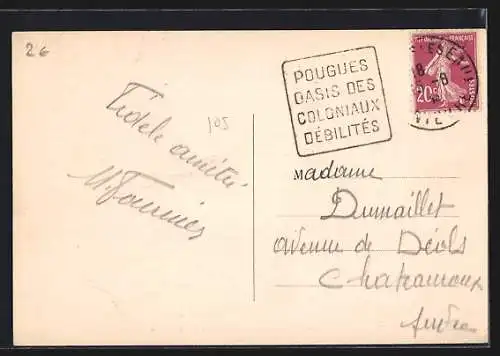 26
POUGUES
OASIS DES
COLONIAUX
DÉBILITÉS
20c
105
Fidèle amitié
M. Fournier
Madame
Dumaillet
avenue de Déols
Chateauroux
Indre